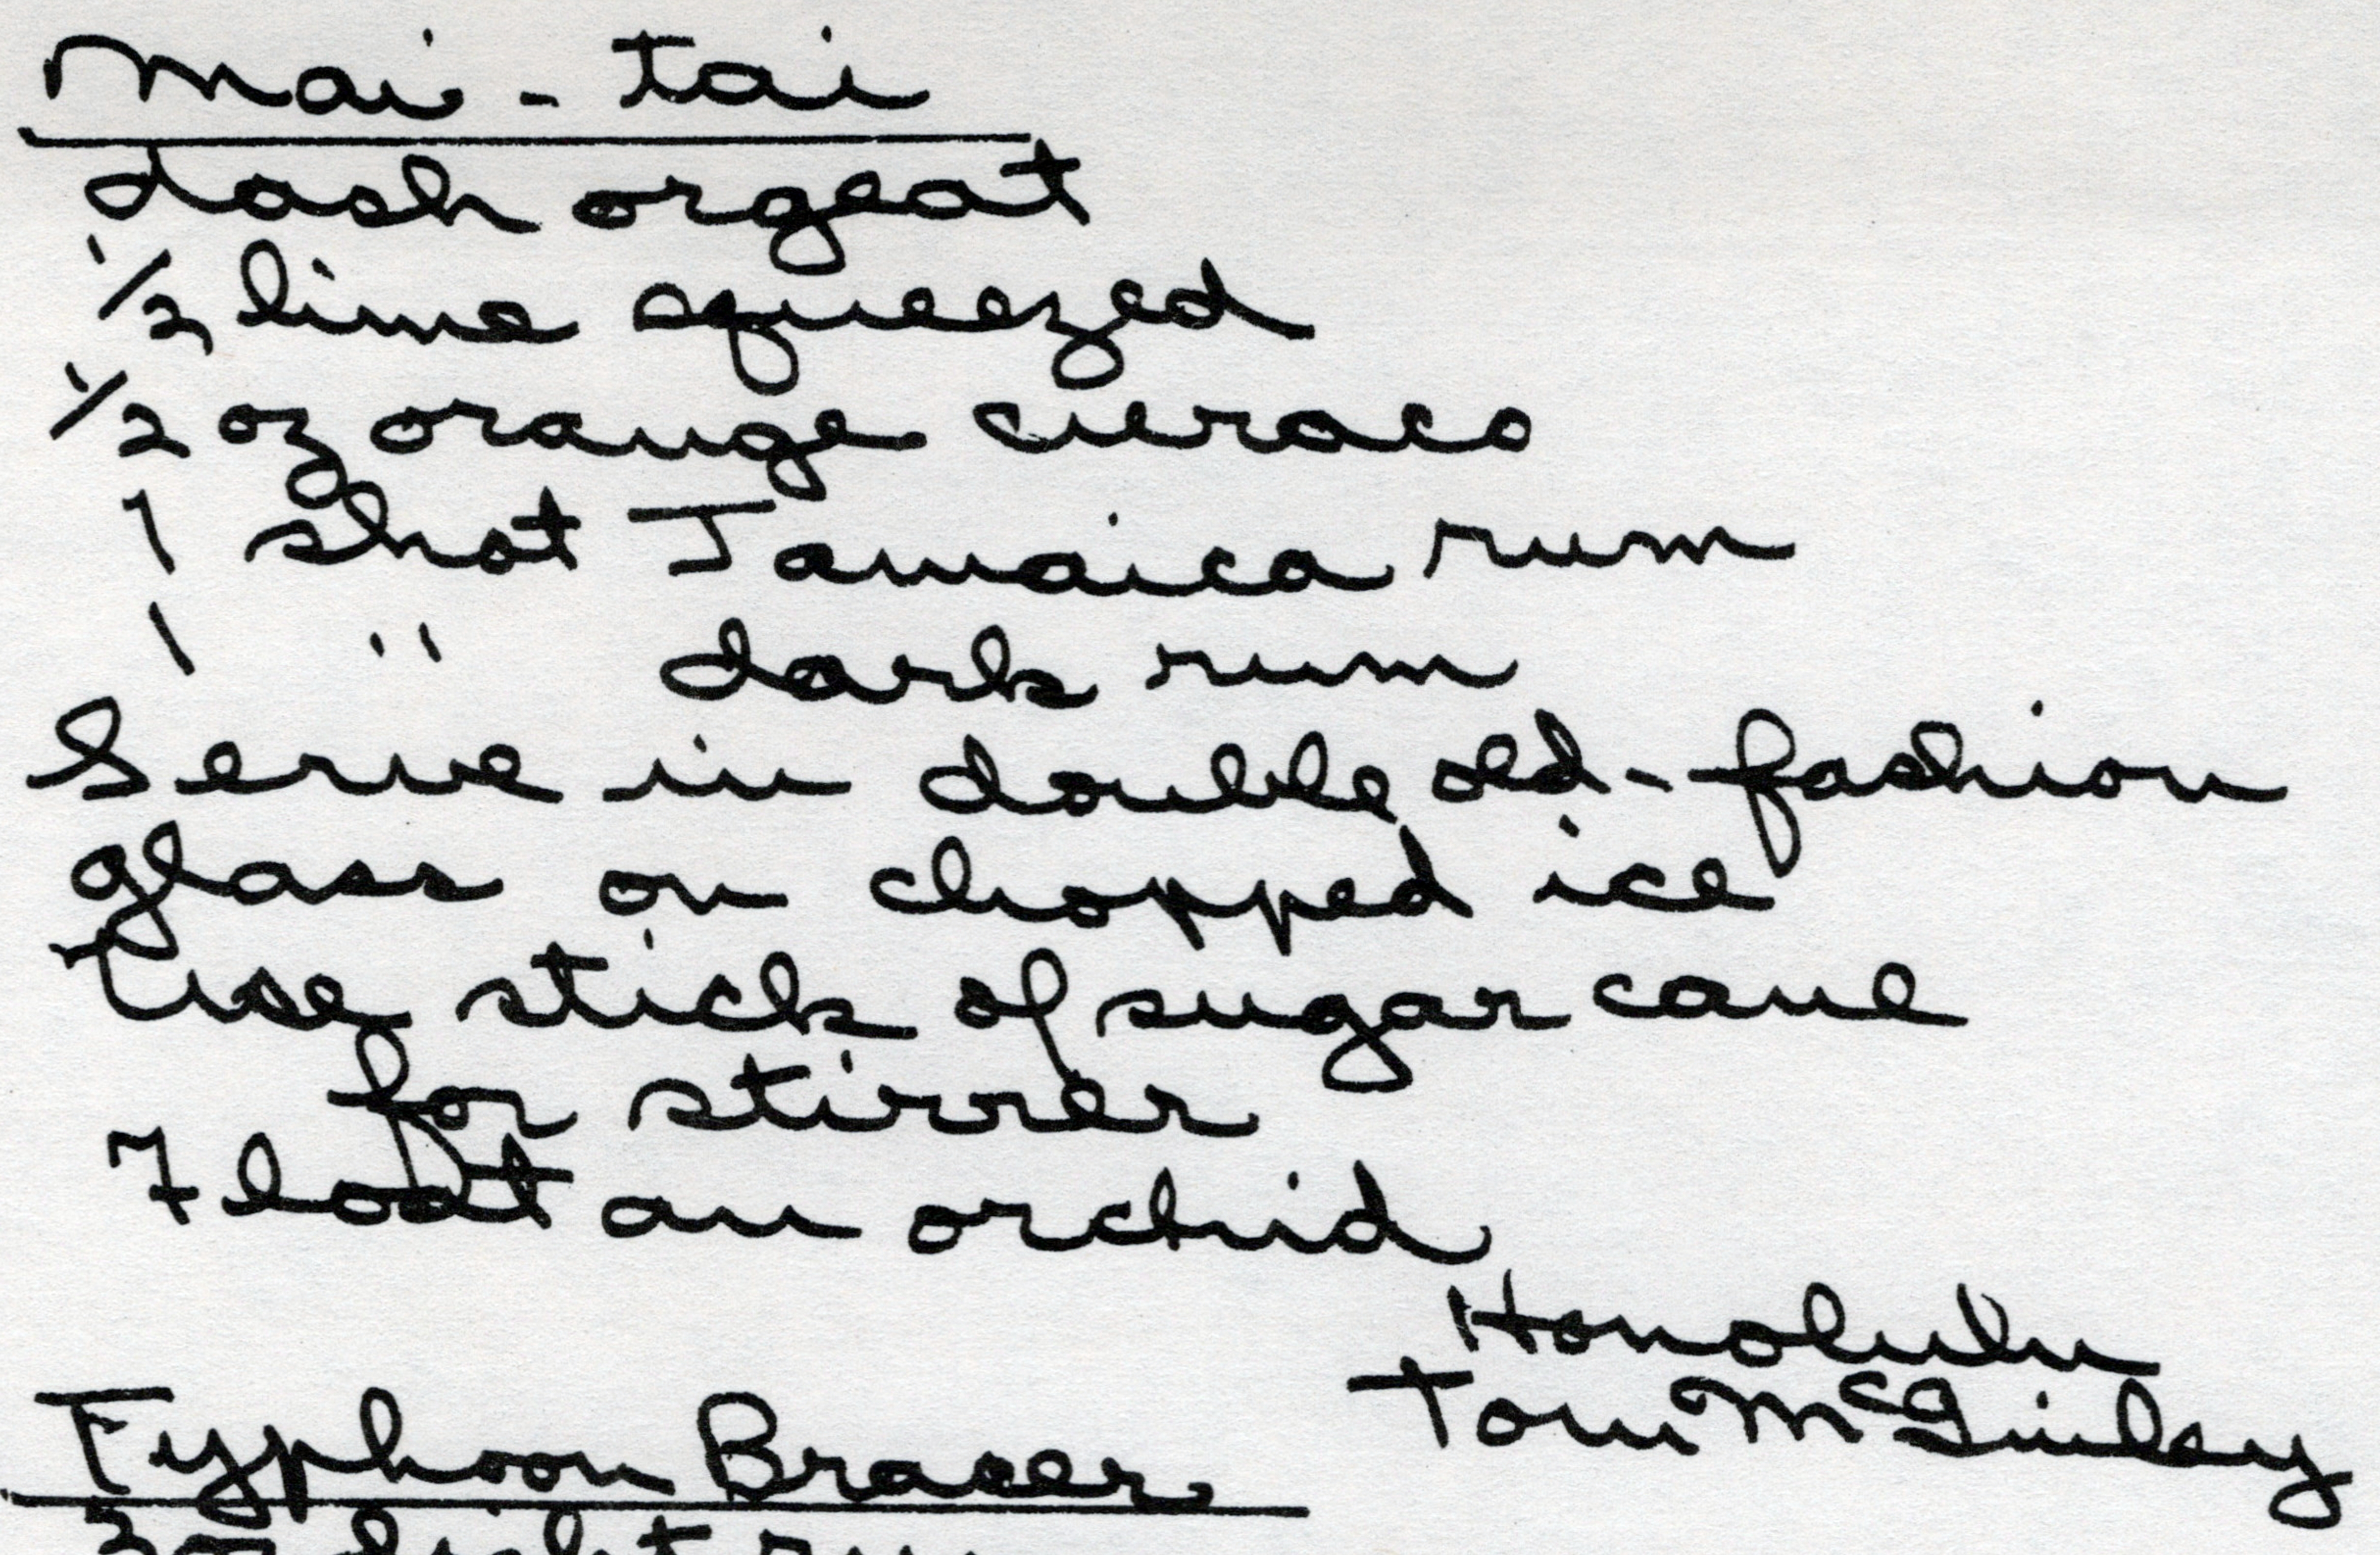 Mai - tai
dash orgeat
1/2 lime squeezed
1/2 oz orange curaco
1 shot Jamaica rum
1 " dark rum
Serve in double old-fashion
glass on chopped ice
Use stick of sugar cane
for stirrer
Float an orchid
Honolulu
Tom McGinley
Typhoon Bracer
3 oz light rum